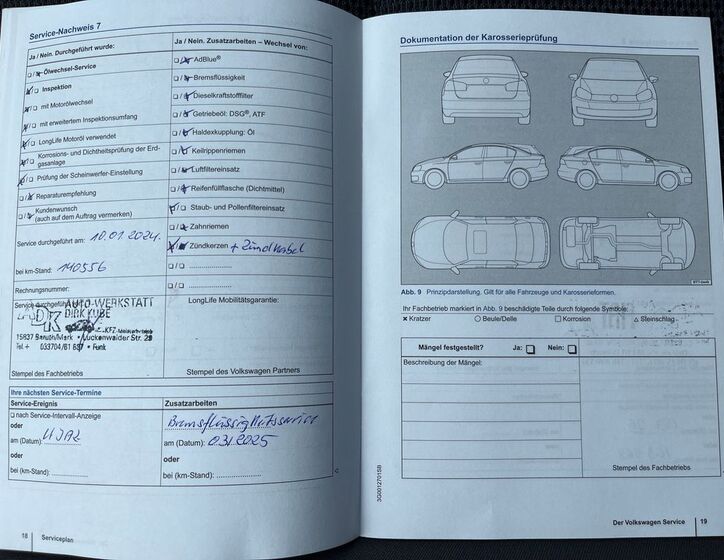 Service-Nachweis 7
Ja / Nein. Durchgeführt wurde:
Ölwechsel-Service
Inspektion
mit Motorölwechsel
mit erweitertem Inspektionsumfang
LongLife Motoröl verwendet
Korrosions- und Dichtheitsprüfung der Erd-
gasanlage
Prüfung der Scheinwerfer-Einstellung
Reparaturempfehlung
Kundenwunsch
(auch auf dem Auftrag vermerken)
Service durchgeführt am: 10.01.2024.
bei km-Stand: 140556
Rechnungsnummer:
Service durchgeführt
AUTO-WERKSTATT
DIRK KUBE
15837 Baruth/Mark • Luckenwalder Str. 29
Tel.+ 033704/61 637 • Funk
Stempel des Fachbetriebs
Ja / Nein. Zusatzarbeiten – Wechsel von:
AdBlue®
Bremsflüssigkeit
Dieselkraftstofffilter
Getriebeöl: DSG®, ATF
Haldexkupplung: Öl
Keilrippenriemen
Luftfiltereinsatz
Reifenfüllflasche (Dichtmittel)
Staub- und Pollenfiltereinsatz
Zahnriemen
Zündkerzen + Zündkabel
LongLife Mobilitätsgarantie:
Stempel des Volkswagen Partners
Ihre nächsten Service-Termine
Service-Ereignis
nach Service-Intervall-Anzeige
oder
am (Datum):
oder
bei (km-Stand):
Zusatzarbeiten
Bremsflüssigkeitsservice
am (Datum): 03/2025
oder
bei (km-Stand):
18 Serviceplan
Dokumentation der Karosserieprüfung
Abb. 9 Prinzipdarstellung. Gilt für alle Fahrzeuge und Karosserieformen.
Ihr Fachbetrieb markiert in Abb. 9 beschädigte Teile durch folgende Symbole:
× Kratzer ○ Beule/Delle □ Korrosion △ Steinschlag
Mängel festgestellt? Ja: □ Nein: □
Beschreibung der Mängel:
Stempel des Fachbetriebs
3G0012701SB
Der Volkswagen Service 19